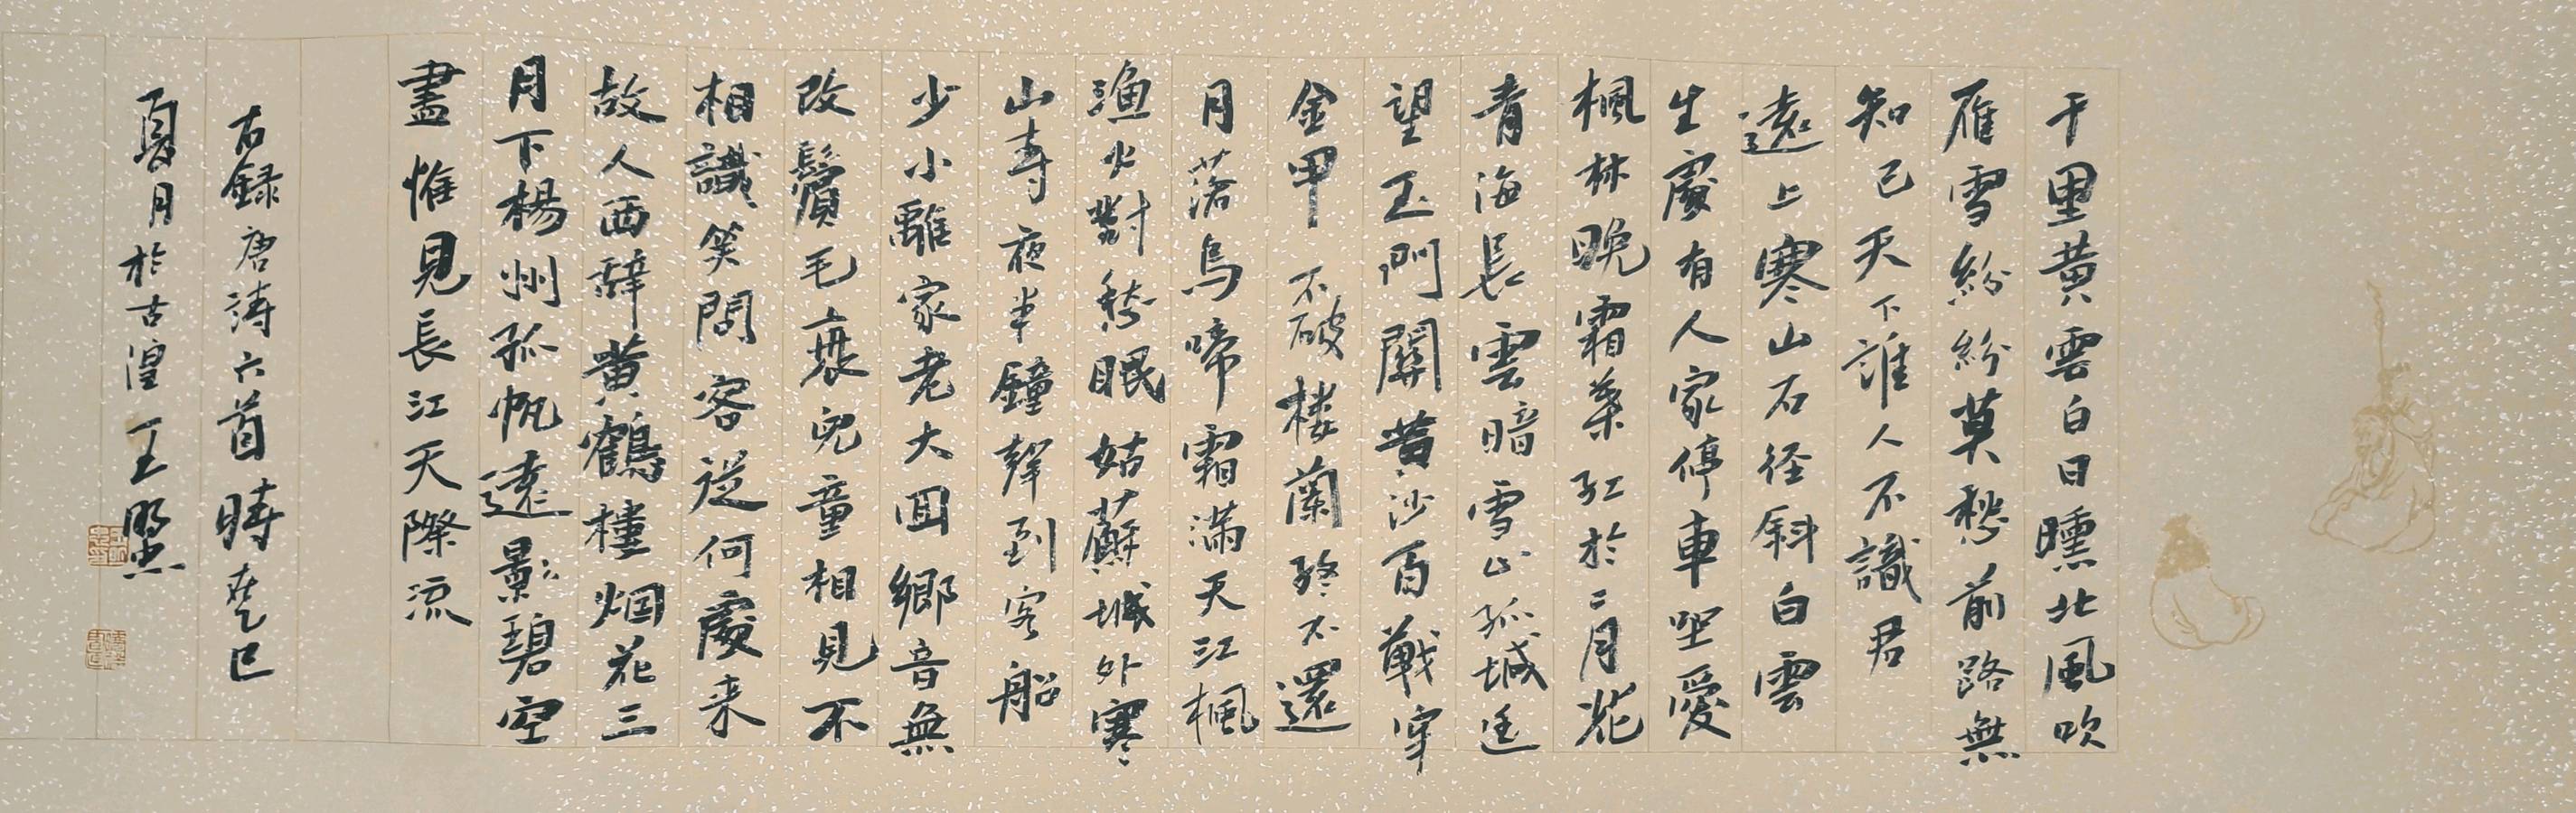 千里黃雲白日曛北風吹
雁雪紛紛莫愁前路無
知己天下誰人不識君
遠上寒山石径斜白雲
生處有人家停車坐愛
楓林晚霜葉紅於二月花
青海長雲暗雪山孤城遥
望玉門關黄沙百戰穿
金甲不破楼蘭終不還
月落烏啼霜滿天江楓
漁火對愁眠姑蘇城外寒
山寺夜半鐘聲到客船
少小離家老大回鄉音無
改鬢毛衰兒童相見不
相識笑問客從何處来
故人西辭黄鶴樓烟花三
月下楊州孤帆遠影碧空
盡惟見長江天際流
右録唐詩六首時乙巳
夏月於古湟王照